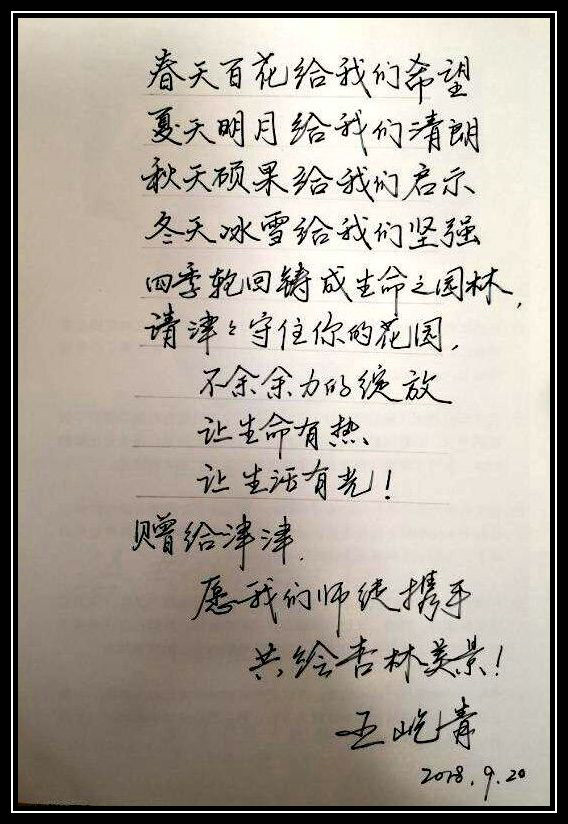 春天百花给我们希望
夏天明月给我们清朗
秋天硕果给我们启示
冬天冰雪给我们坚强
四季轮回铸成生命之园林,
请津々守住你的花园,
不余余力的绽放
让生命有热、
让生活有光!
赠给津津.
愿我们师徒携手
共绘杏林美景!
王屹青
2018.9.20